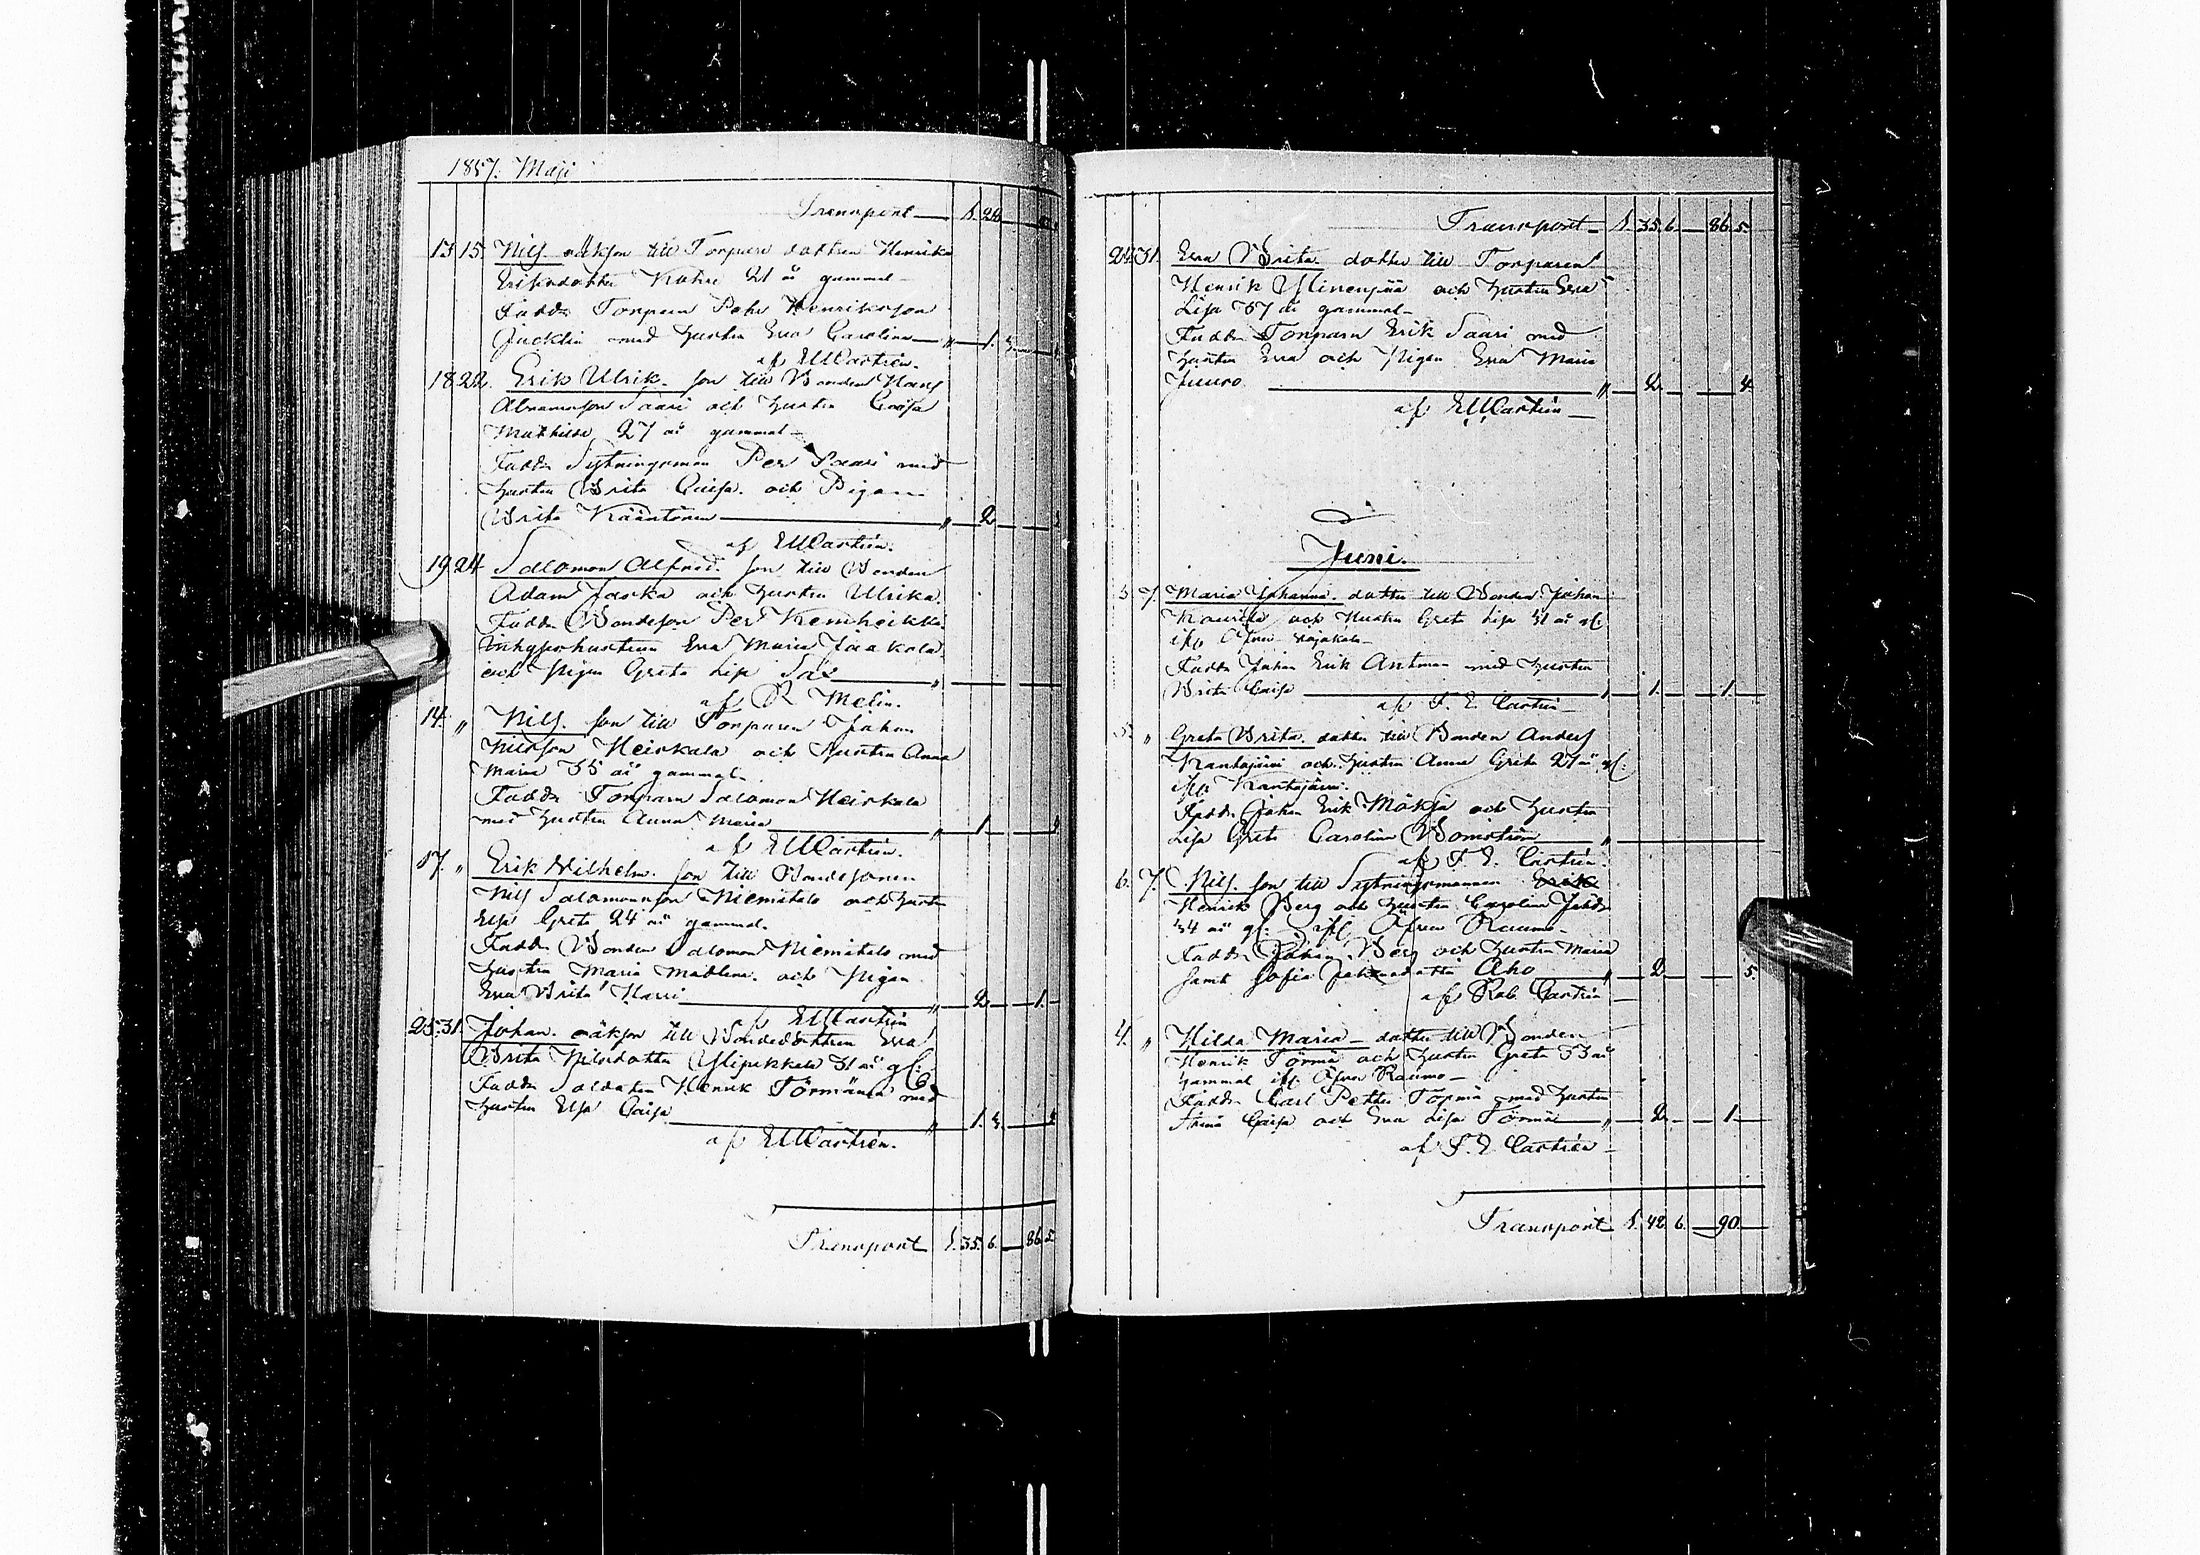 1857. Maji
Transport
13 15. Nils. oäkson till Torpare dottren Henrika
Eriksdotter 21 år gammal
Fadder Torparen Petr Henriksson
med hustru Eva Carolina 1.
af Castrén.
18 22. Erik Ulrik. son till Bonden Hans
Abramsson Saari och hustru Caisa
Mathilda 27 år gammal
Fadder Sytningsman Per Saari med
hustru Brita Caisa och Pigan
Brita 2
af Castrén.
19 24 Salomon Alfred. son till Bonden
Adam Jaska och hustru Ulrika.
Fadder Bondeson Per
Inhyseshustrun Eva Maria Jaakola
och Pigan Greta Lisa
af Melin.
14. " Nils. son till Torparen Johan
Nilsson Heiskala och hustru Anna
Maria 35 år gammal.
Fadder Torparen Salomon Heiskala
med hustru Anna Maria 1.
af Castrén.
17. " Erik Wilhelm. son till Bondesonen
Nils Salomonsson Niemitalo och hustru
Elsa Greta 24 år gammal.
Fadder Bonden Salomon Niemitalo med
hustru Maria Madlena. och Pigan
Eva Brita Harri 2 1.
af Castrén
25. 31. Johan. oäkson till Bondedottren Eva
Brita Nilsdotter Ylipekkala 31 år gl:
Fadder Soldaten Henrik Törmänen med
hustru Elsa Caisa 1.
af Castrén.
Transport S. 35. 6. 86. 5.
Transport S. 35. 6. 86. 5.
31. Eva Brita. dotter till Torparen
Henrik och hustru Eva
Lisa 37 år gammal
Fadder Torparen Erik Saari med
hustru Eva och Pigan Eva Maria
Juuso. " 2 4.
af Castrén
Juni.
5. 7. Maria Johanna. dotter till Bonden Johan
och Hustru Greta Lisa 31 år gl:
Fadder Johan Erik Antman med hustru
Brita Caisa " 1. 1.
af F. E. Castrén
5. " Greta Brita. dotter till Bonden Anders
Kantojärvi och hustru Anna Greta 27 år gl:
Kantojärvi.
Fadder Johan Erik och hustru
Lisa Greta Carolina "
af F. E. Castrén.
6. 7. Nils. son till Sytningsmannen Erik
Henrik Berg och hustru Carolina
34 år gl: Öfver Raumo
Fadder Johan Berg och hustru Maria
samt Sofia Aho " 2 5.
af Rob. Castrén
4. " Hilda Maria dotter till Bonden
Henrik Törmä och hustru Greta 33 år
gammal Öfver Raumo
Fadder Carl Petter Törmä med hustru
Caisa och Eva Lisa Törmä " 2 1.
af F. E. Castrén
Transport S. 42 6. 90